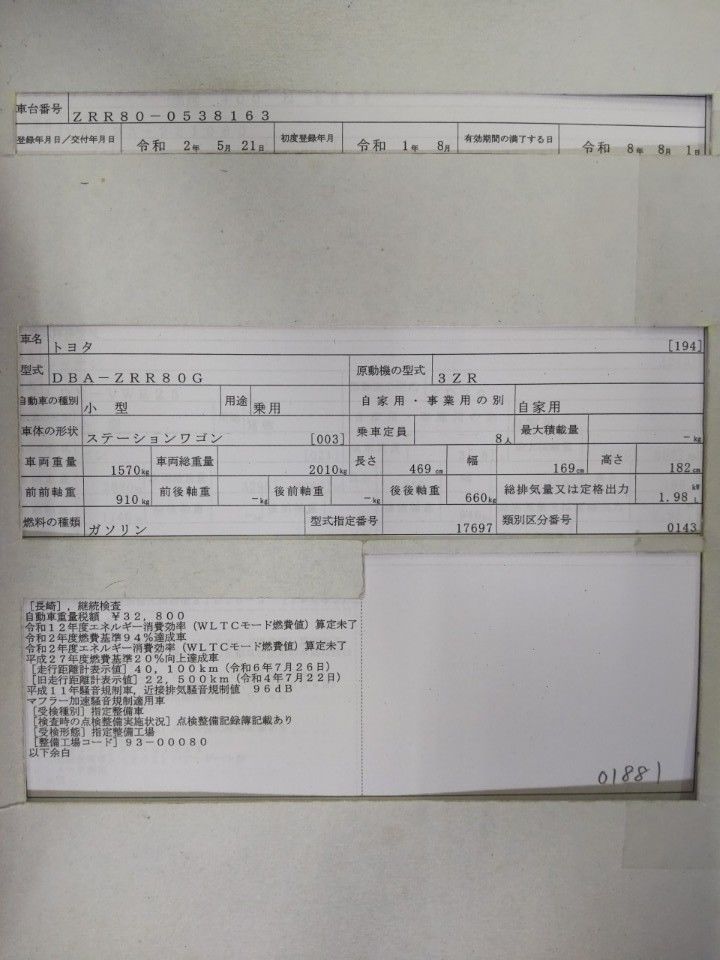 車台番号 ZRR80-0538163
登録年月日/交付年月日 令和 2年 5月 21日 初度登録年月 令和 1年 8月 有効期間の満了する日 令和 8年 8月 1日
車名 トヨタ [194]
型式 DBA-ZRR80G 原動機の型式 3ZR
自動車の種別 小型 用途 乗用 自家用・事業用の別 自家用
車体の形状 ステーションワゴン [003] 乗車定員 8人 最大積載量 -kg
車両重量 1570kg 車両総重量 2010kg 長さ 469cm 幅 169cm 高さ 182cm
前前軸重 910kg 前後軸重 -kg 後前軸重 -kg 後後軸重 660kg 総排気量又は定格出力 1.98 kW L
燃料の種類 ガソリン 型式指定番号 17697 類別区分番号 0143
[長崎],継続検査
自動車重量税額 ¥32,800
令和12年度エネルギー消費効率(WLTCモード燃費値)算定未了
令和2年度燃費基準94%達成車
令和2年度エネルギー消費効率(WLTCモード燃費値)算定未了
平成27年度燃費基準20%向上達成車
[走行距離計表示値]40,100km(令和6年7月26日)
[旧走行距離計表示値]22,500km(令和4年7月22日)
平成11年騒音規制車,近接排気騒音規制値 96dB
マフラー加速騒音規制適用車
[受検種別]指定整備車
[検査時の点検整備実施状況]点検整備記録簿記載あり
[受検形態]指定整備工場
[整備工場コード]93-00080
以下余白
01881